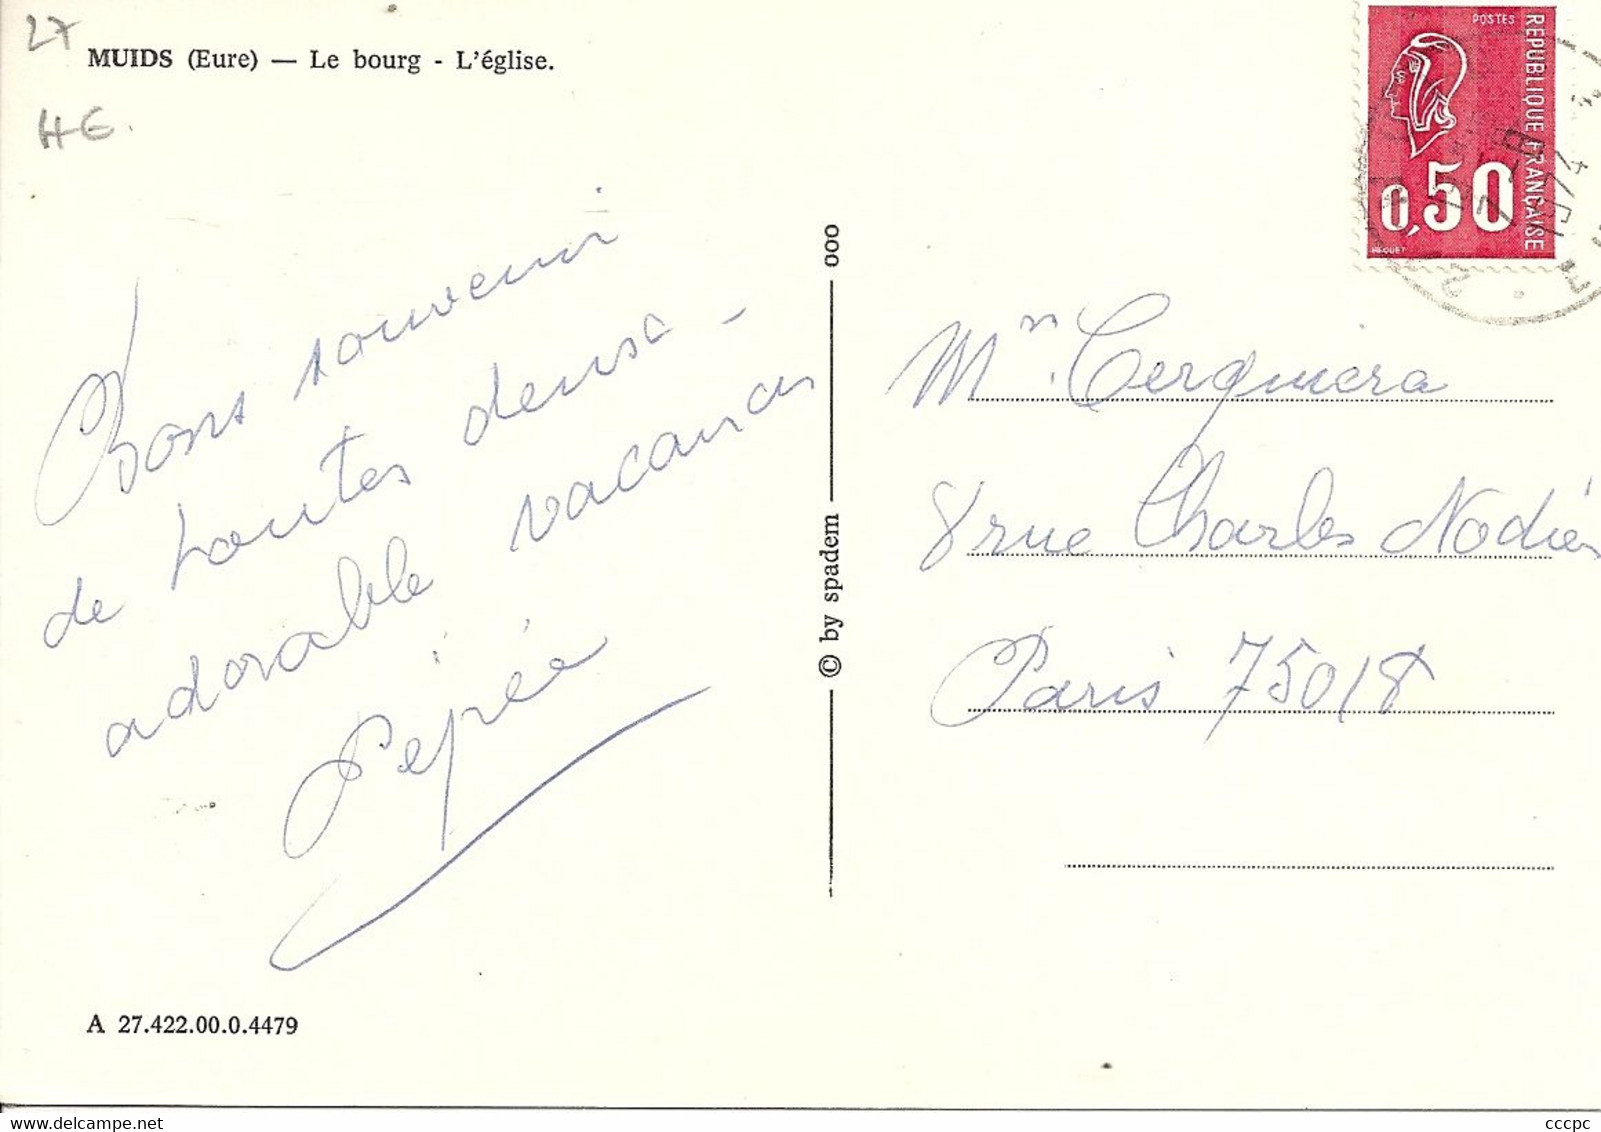 27
MUIDS (Eure) — Le bourg - L'église.
HE.
POSTES
REPUBLIQUE FRANÇAISE
0,50
1974
Bons souvenir
de toutes
adorable vacances
Pépée
© by spadem
ooo
Mm Cerquiera
8 rue Charles Nodier
Paris 75018
A 27.422.00.0.4479
cccpc